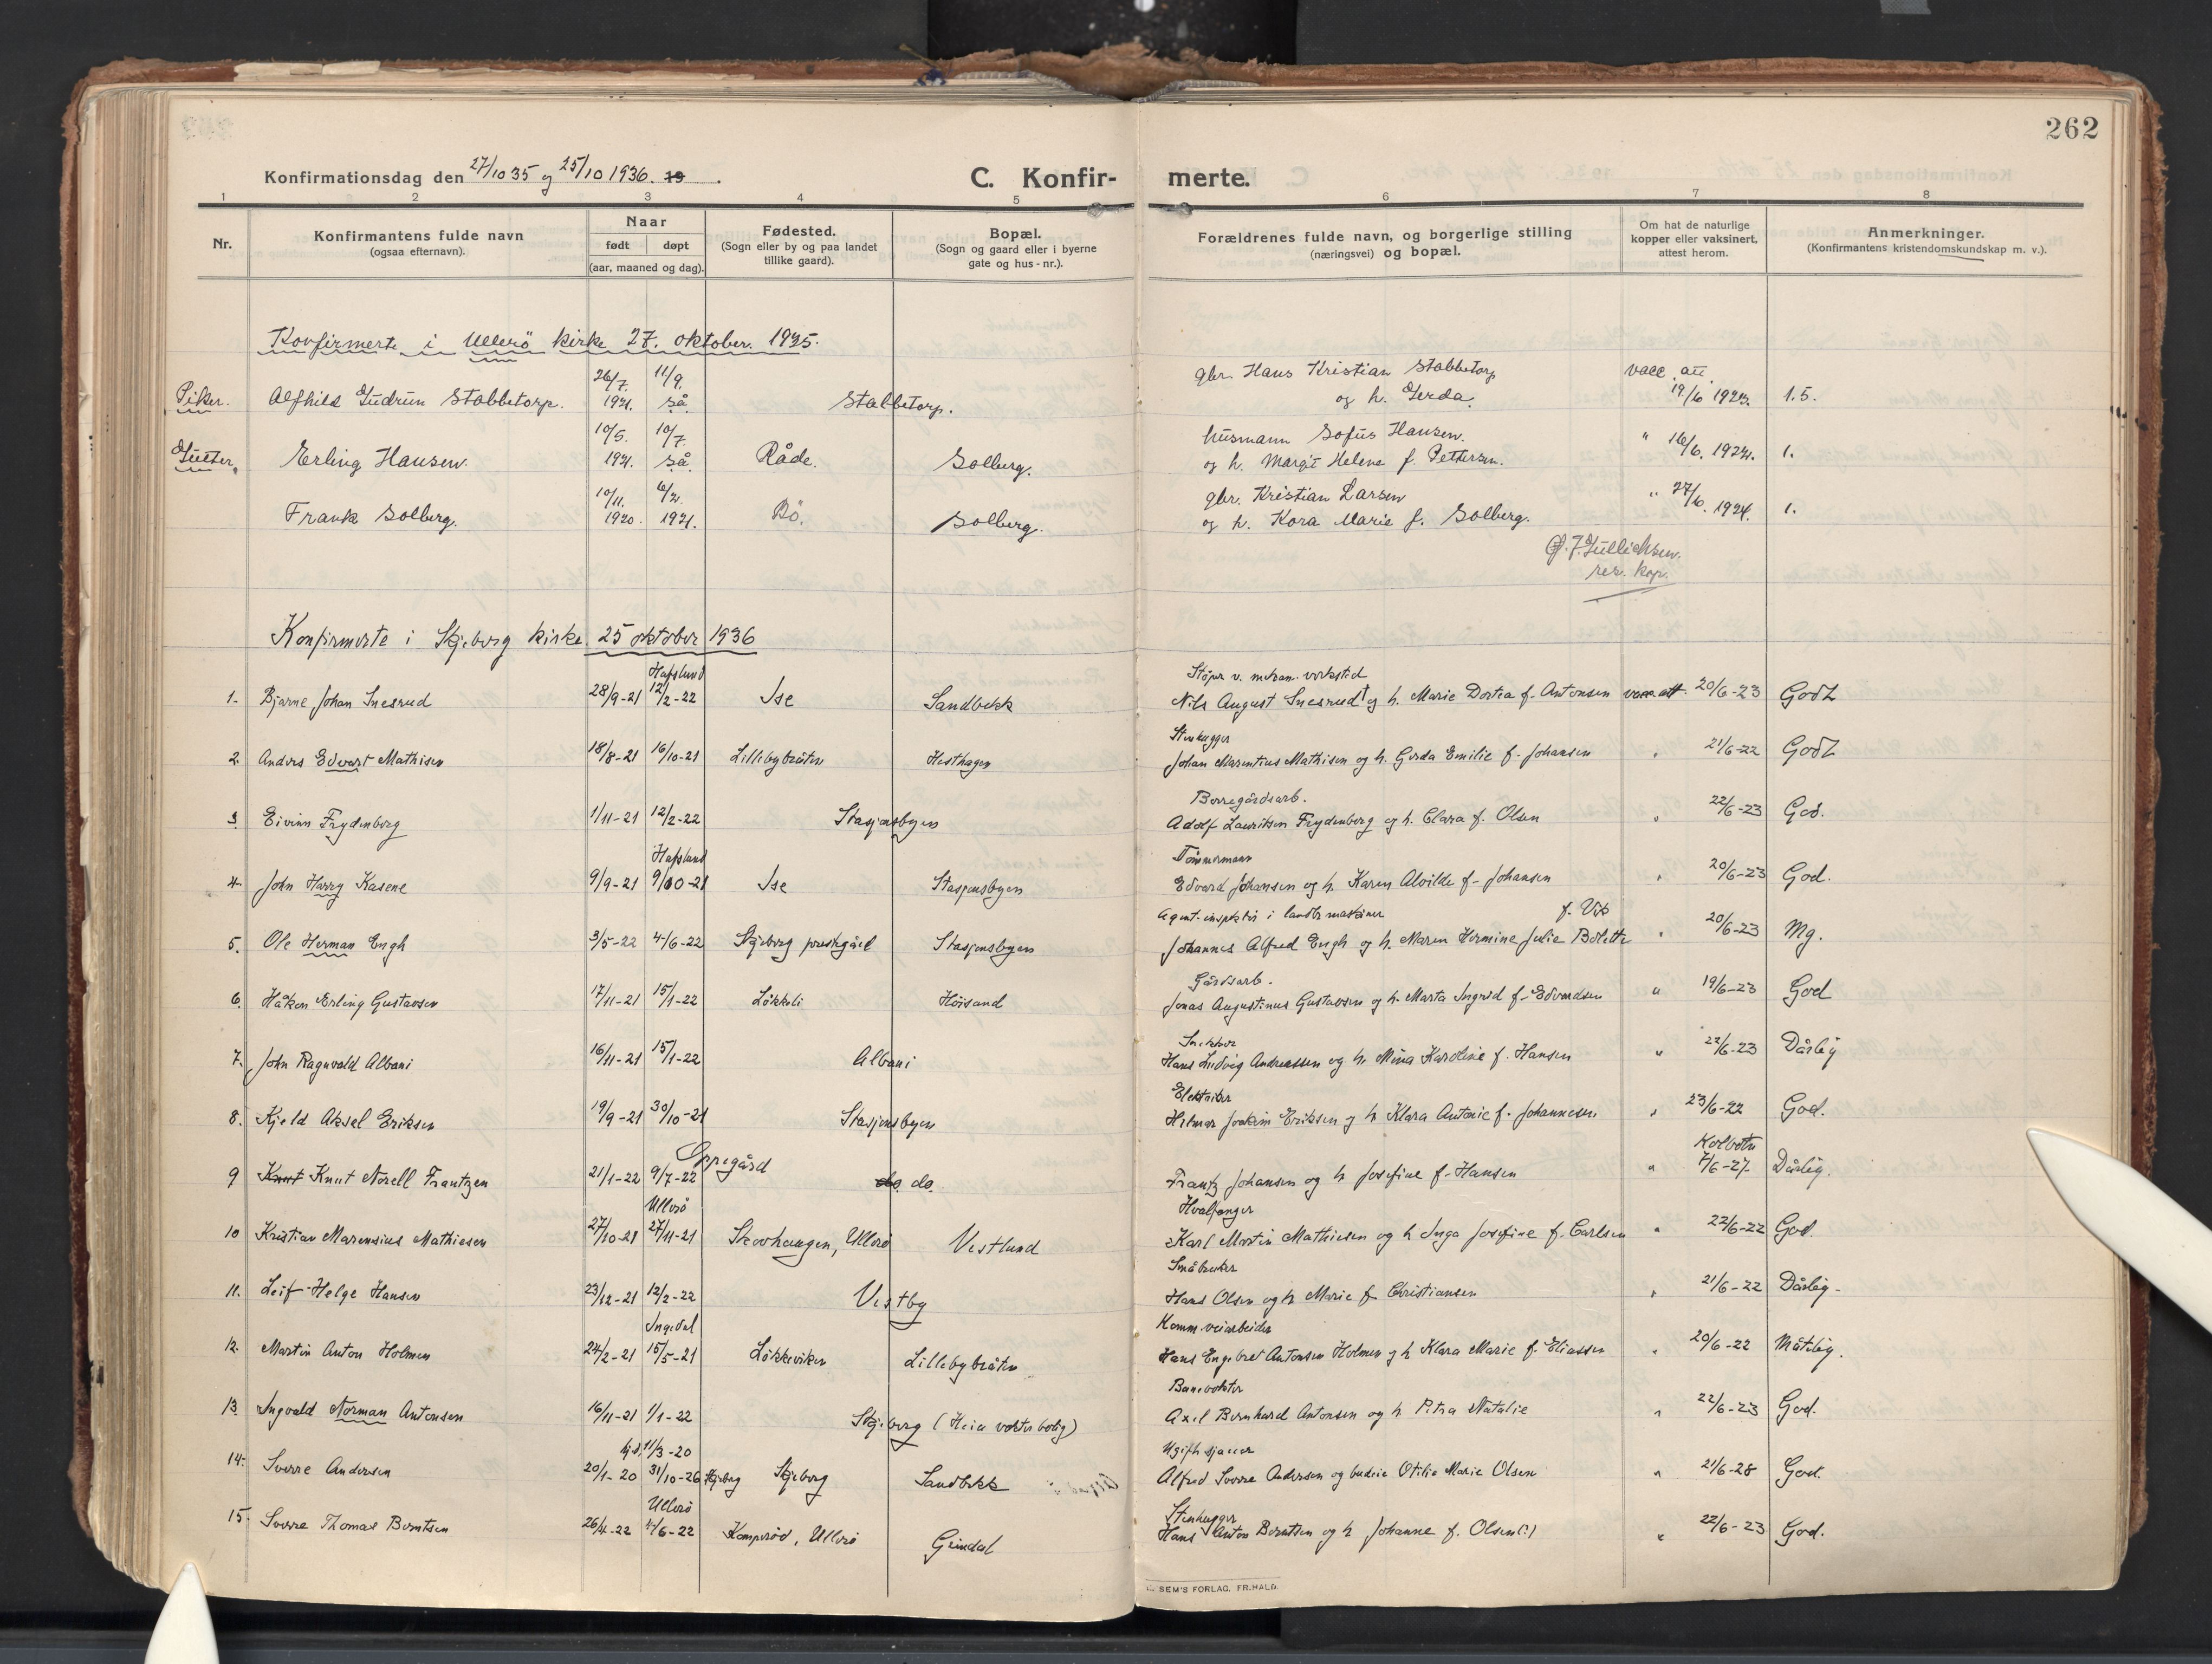 262
Konfirmationsdag den 27/10 35 og 25/10 1936. 19 .
C. Konfir-
merte.
1 2 3 4 5 6 7 8
Nr.
Konfirmantens fulde navn
(ogsaa efternavn).
Naar
født døpt
(aar, maaned og dag).
Fødested.
(Sogn eller by og paa landet
tillike gaard).
Bopæl.
(Sogn og gaard eller i byerne
gate og hus-nr.).
Forældrenes fulde navn, og borgerlige stilling
(næringsvei) og bopæl.
Om hat de naturlige
kopper eller vaksinert,
attest herom.
Anmerkninger.
(Konfirmantens kristendomskundskap m. v.).
Konfirmerte i Ullerö kirke 27. oktober. 1935.
26/7. 11/9. gbr. Hans Kristian Stabbetorp vacc. att.
Piker. Alfhild Gudrun Stabbetorp. 1921. så. Stabbetorp. og h. Gerda. 19/6 1923. 1.5.
10/5. 10/7. husmann Sofus Hansen.
Gutter. Erling Hansen. 1921. så. Råde. Solberg. og h. Margit Helene f. Pettersen. " 16/6. 1924. 1.
10/11. 6/2. gbr. Kristian Larsen
Frank Solberg. 1920. 1921. Bö. Solberg. og h. Kora Marie f. Solberg. " 27/6. 1924. 1.
J. Gullichsen.
res. kap.
Konfirmerte i Skjeberg kirke 25 oktober 1936
Hafslund Støper v. mekan. verksted
1. Bjarne Johan Snesrud 28/9-21 12/2-22 Ise Sandbekk Nils August Snesrud† og h. Marie Dortea f. Antonsen vacc. att. 20/6-23 Godt
Stenhugger
2. Anders Edvart Mathisen 18/8-21 16/10-21 Lillebybråten Hesthagen Johan Marentius Mathisen og h. Gerda Emilie f. Johansen " 21/6-22 Godt
Borregårdsarb.
3. Eivinn Frydenberg 1/11-21 12/2-22 Stasjonsbyen Adolf Lauritsen Frydenberg og h. Clara f. Olsen " 22/6-23 God.
Hafslund Tömmermann
4. John Harry Kasene 9/9-21 9/10-21 Ise Stasjonsbyen Edvard Johansen og h. Karen Alvilde f. Johansen " 20/6-23 God.
Agent-inspektör i landbr. maskiner f. Vik
5. Ole Herman Engh 3/5-22 4/6-22 Skjeberg prestegård Stasjonsbyen Johannes Alfred Engh og h. Maren Hermine Julie Bolette " 20/6-23 Mg.
Gårdsarb.
6. Håkon Erling Gustavsen 17/11-21 15/1-22 Løkkeli Høisand Jonas Augustinus Gustavsen og h. Marta Ingrid f. Edvardsen " 19/6-23 God
Snekker
7. John Ragnvald Albani 16/11-21 15/1-22 Albani Hans Ludvig Andreassen og h. Mina Karoline f. Hansen " 22/6-23 Dårlig
Elektriker
8. Kjeld Aksel Eriksen 19/9-21 30/10-21 Stasjonsbyen Hilmar Joakim Eriksen og h Klara Antonie f. Johannesen " 23/6-22 God.
Oppegård Kolbotn
9 Knut Knut Norell Frantzen 21/1-22 9/7-22 do. do. Frantz Johansen og h Josefine f. Hansen " 7/6-27 Dårlig.
Ullerö Hvalfanger
10 Kristian Marensius Mathiesen 27/10-21 27/11-21 Skovhaugen, Ullerö Vestlund Karl Martin Mathiesen og h Inga Josefine f. Carlsen " 22/6-22 God.
Småbruker
11. Leif Helge Hansen 23/12-21 12/2-22 Vestby Hans Olsen og h Marie f Christiansen " 21/6-22 Dårlig.
Ingedal Komm. veiarbeider
12. Martin Anton Holmen 24/2-21 15/5-21 Løkkeviken Lillebybråten Hans Engebret Antonsen Holmen og h Klara Marie f. Eliassen " 20/6-22 Måtelig.
Banevokter
13. Ingvald Norman Antonsen 16/11-21 1/1-22 Skjeberg (Heia vokterbolig) Axel Bernhard Antonsen og h Petra Natalie " 22/6-23 God.
hj.d. 11/3-20 Ugift sjauer
14. Sverre Andersen 20/1-20 31/10-26 Skjeberg Skjeberg Sandbekk Alfred Sverre Andersen og budeie Otilie Marie Olsen " 21/6-28 God.
Ullerö Stenhugger
15. Sverre Thomas Berntsen 26/4-22 4/6-22 Kamperød, Ullerö Grindal Hans Anton Berntsen og h Johanne f. Olsen(?) " 22/6-23 God.
SEM'S FORLAG, FR.HALD.